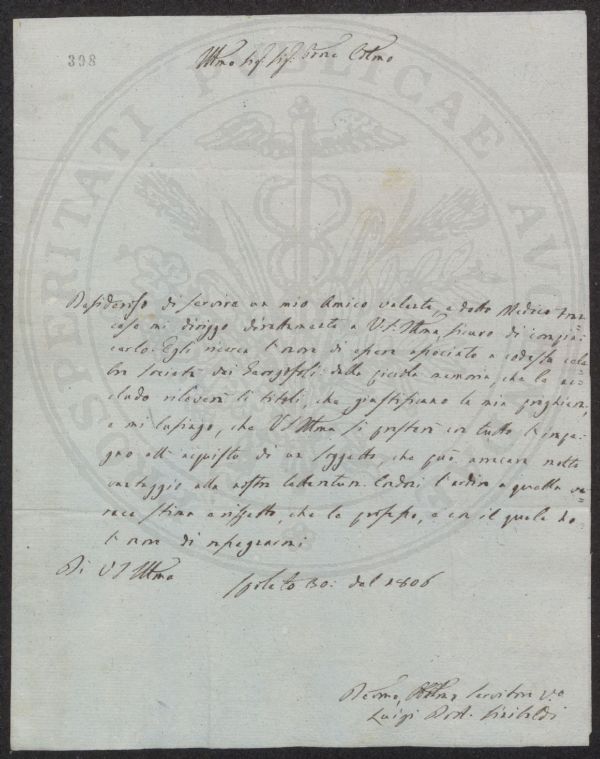 398
Illmo Sig. Sig. Prone Colmo
Desideroso di servire un mio Amico valente, e dotto Medico
caso mi dirizzo direttamente a V.S. Illma, sicuro di compia-
cerlo. Egli ricerca l'onore di essere associato a codesta cele-
bre società dei Georgofili: dalla piccola memoria, che le ac-
cludo rileverà li titoli, che giustificano la mia preghiera,
e mi lusingo, che V.S. Illma si presterà con tutto l'impe-
gno all'acquisto di un soggetto, che può arrecare molto
vantaggio alla nostra letteratura. Condoni l'ardire a quella ve-
race stima e rispetto, che le professo, e con il quale ho
l'onore di rassegnarmi
Di V.S. Illma
Spoleto 30: del 1806
Devmo, Servitore v.o
Luigi Dott. Sinibaldi
PROSPERITATI PUBLICAE AU